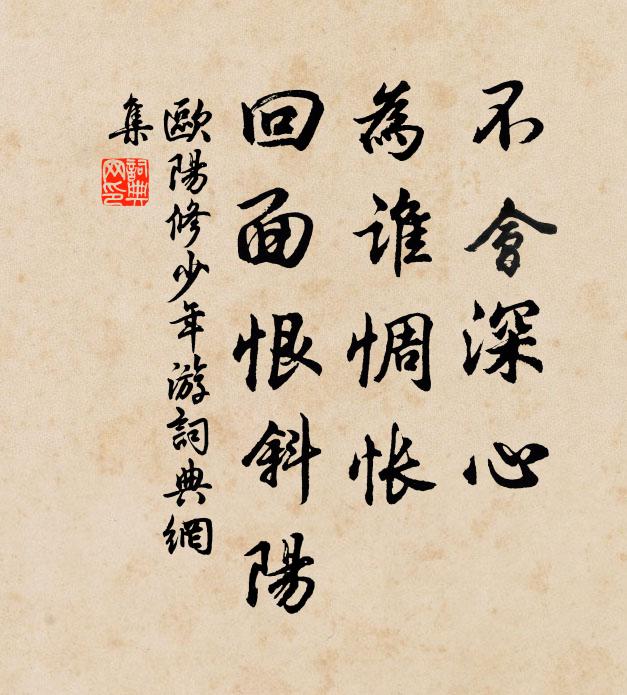 不會深心
為誰惆怅
回面恨斜陽
歐陽修少年游詞典網
集
詞典
网印